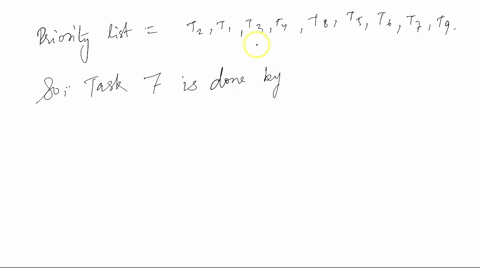 Priority list = T2, T1, T3, T4, T8, T5, T6, T7, T9.
So; Task 7 is done by